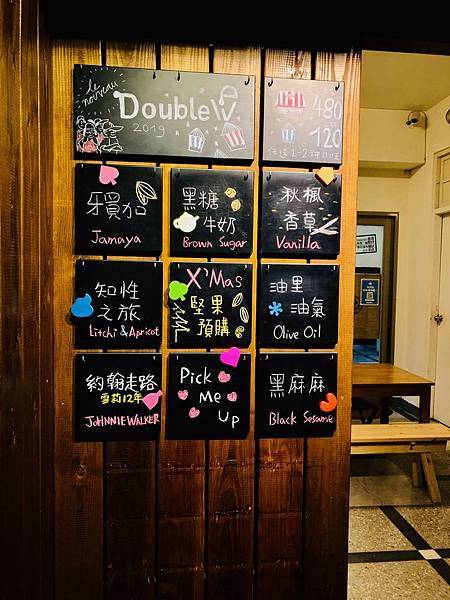 Le nouveau
Double V
2019
480
120
任選 1-2 種口味
牙買加
Jamaya
黑糖
牛奶
Brown Sugar
秋楓
香草
Vanilla
知性
之旅
Litchi & Apricot
X'Mas
堅果
預購
油里
油氣
Olive Oil
約翰走路
雪莉12年
JOHNNIE WALKER
Pick
Me
Up
黑麻麻
Black Sesame